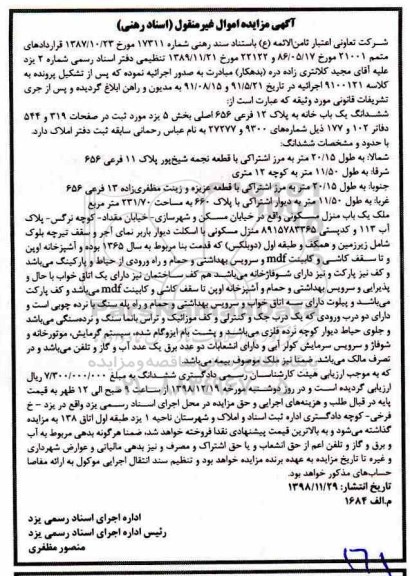 آگهی مزایده اموال غیرمنقول (اسناد رهنی)
شرکت تعاونی اعتبار ثامن‌الائمه (ع) باستناد سند رهنی شماره ۱۷۳۱۱ مورخ ۱۳۸۷/۱۰/۲۳ قراردادهای
متمم ۲۱۰۰۱ مورخ ۸۶/۰۵/۱۷ و ۲۲۱۲۲ مورخ ۱۳۸۹/۱۱/۲۱ تنظیمی دفتر اسناد رسمی شماره ۲ یزد
علیه آقای مجید کلانتری زاده دره (بدهکار) مبادرت به صدور اجرائیه نموده که پس از تشکیل پرونده به
کلاسه ۹۱۰۰۱۲۱ اجرائیه در تاریخ ۹۱/۵/۲۱ و ۹۱/۰۸/۱۵ به مدیون و راهن ابلاغ گردیده و پس از جری
تشریفات قانونی مورد وثیقه که عبارت است از:
ششدانگ یک باب خانه به پلاک ۱۲ فرعی ۶۵۶ اصلی بخش ۵ یزد مورد ثبت در صفحات ۳۱۹ و ۵۴۴
دفاتر ۱۰۲ و ۱۷۷ ذیل شماره‌های ۹۳۰۰ و ۲۷۲۷۷ به نام عباس رحمانی سابقه ثبت دفتر املاک دارد.
با حدود و مشخصات ششدانگ:
شمالا: به طول ۲۰/۱۵ متر به مرز اشتراکی با قطعه نجمه شیخ‌پور پلاک ۱۱ فرعی ۶۵۶
شرقا: به طول ۱۱/۵۰ متر به کوچه ۱۲ متری
جنوبا: به طول ۲۰/۱۵ متر به مرز اشتراکی با قطعه عزیزه و زینت مظفری‌زاده ۱۳ فرعی ۶۵۶
غربا: به طول ۱۱/۵۰ متر به دیوار اشتراکی با پلاک ۶۶۰ به مساحت ۲۳۱/۷۰ متر مربع
ملک یک باب منزل مسکونی واقع در خیابان مسکن و شهرسازی- خیابان مقداد- کوچه نرگس- پلاک
آب ۱۱۳ و کدپستی ۸۹۱۵۷۸۳۳۶۵ منزل مسکونی با اسکلت دیوار باربر نمای آجر و سقف تیرچه بلوک
شامل زیرزمین و همکف و طبقه اول (دوبلکس) که قدمت بنا مربوط به سال ۱۳۶۵ بوده و آشپزخانه اوپن
و تا سقف کاشی و کابینت mdf و سرویس بهداشتی و حمام و راه ورودی از حیاط و پارکینگ می‌باشد
و کف نیز پارکت و نیز دارای شوفاژخانه می‌باشد هم کف ساختمان نیز دارای یک اتاق خواب با حال و
پذیرایی و سرویس بهداشتی و حمام و آشپزخانه اوپن تا سقف کاشی و کابینت mdf می‌باشد و کف پارکت
می‌باشد و پیلوت دارای سه اتاق خواب و سرویس بهداشتی و حمام و راه پله سنگ با نرده چوبی است و
دارای دو درب ورودی که یک درب جک و کنترلی و کف موزائیک و تراس بانما سنگ و نرده‌سنگی می‌باشد
و جلوی حیاط دیوار کوچه نرده فلزی می‌باشد و پشت بام ایزوگام شده، سیستم گرمایش، موتورخانه و
شوفاژ و سرویس سرمایش کولر آبی و دارای انشعابات دو عدد برق یک عدد آب و گاز و تلفن می‌باشد و در
تصرف مالک می‌باشد. ضمنا نیز ملک موصوف بیمه می‌باشد.
که به موجب ارزیابی هیئت کارشناسان رسمی دادگستری ششدانگ به مبلغ ۷/۳۰۰/۰۰۰/۰۰۰ ریال
ارزیابی گردیده است و در روز دوشنبه مورخه ۱۳۹۸/۱۲/۱۹ از ساعت ۹ صبح الی ۱۲ ظهر به قیمت
پایه در قبال طلب و هزینه‌های اجرایی و حق مزایده در محل اجرای اسناد رسمی یزد واقع در یزد - خ
فرخی- کوچه دادگستری اداره ثبت اسناد و املاک و شهرستان ناحیه ۱ یزد طبقه اول اتاق ۱۳۸ به مزایده
گذاشته می‌شود و به بالاترین قیمت پیشنهادی نقدا فروخته خواهد شد، ضمنا هرگونه بدهی مربوط به آب
و برق و گاز و تلفن اعم از حق انشعاب و یا حق اشتراک و مصرف و نیز بدهی مالیاتی و عوارض شهرداری
و غیره تا تاریخ مزایده به عهده برنده مزایده خواهد بود و تنظیم سند انتقال اجرایی موکول به ارائه مفاصا
حساب‌های مذکور خواهد بود.
تاریخ انتشار: ۱۳۹۸/۱۱/۲۹
م.الف ۱۶۸۴
اداره اجرای اسناد رسمی یزد
رئیس اداره اجرای اسناد رسمی یزد
منصور مظفری